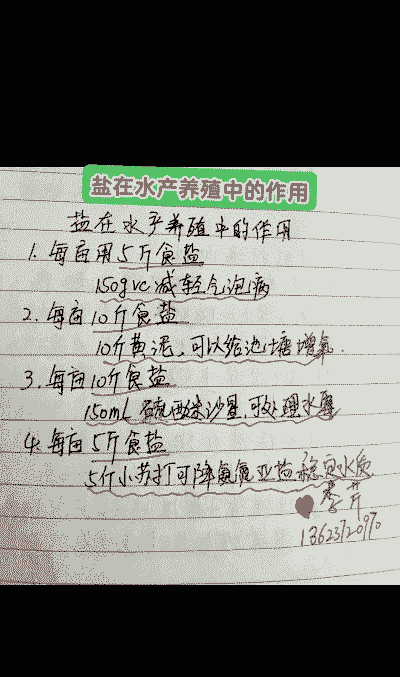 盐在水产养殖中的作用
盐在水产养殖中的作用
1. 每亩用5斤食盐
150gvc减轻气泡病
2. 每亩10斤食盐
10斤黄泥,可以给池塘增氧.
3. 每亩10斤食盐
150mL 硫醚沙星,可处理水霉
4. 每亩5斤食盐
5斤小苏打可降氨氮亚盐稳定水质
13623720970